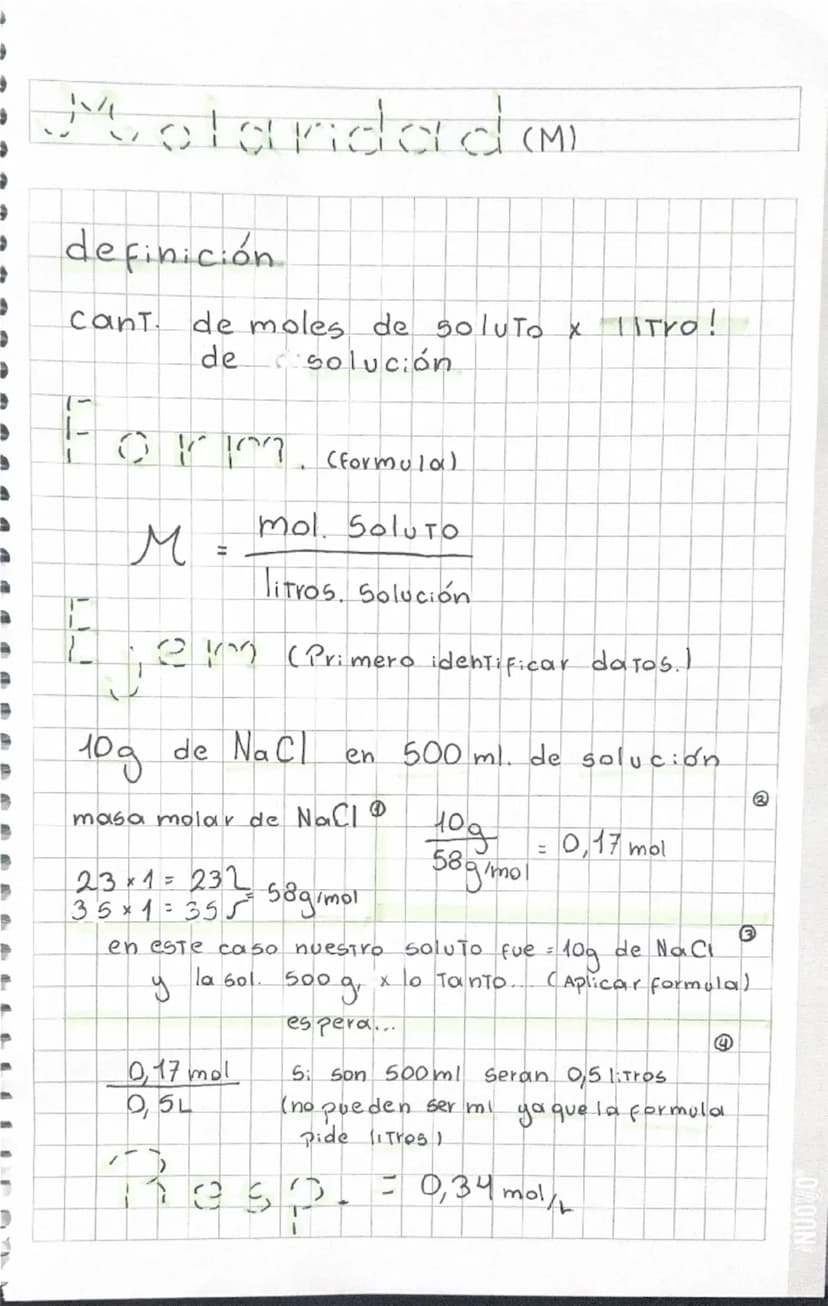 Molaridad (M)
definición
cant. de moles de soluto x litro!
de solución
Form. (formula)
M = mol. soluto / litros. solución
Ejem (Primero identificar datos.)
10g de NaCl en 500 ml. de solución
masa molar de NaCl ①
23 x 1 = 23
35 x 1 = 35 = 58g/mol
②
10g / 58g/mol = 0,17 mol
en este caso nuestro soluto fue = 10g de NaCl ③
y la sol. 500 g, x lo tanto... (Aplicar formula)
espera...
④
0,17 mol / 0,5L
Si son 500ml seran 0,5 litros
(no pueden ser ml ya que la formula
pide litros)
Resp. = 0,34 mol/L